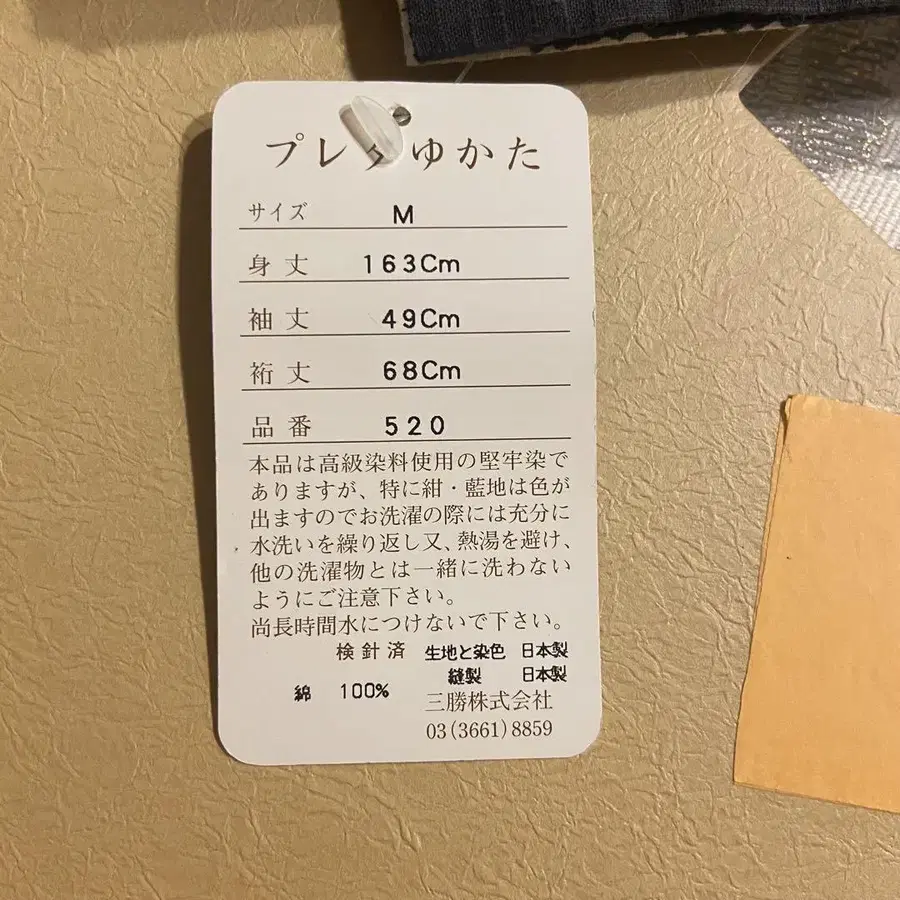 プレタゆかた
サイズ M
身丈 163Cm
袖丈 49Cm
裄丈 68Cm
品番 520
本品は高級染料使用の堅牢染で
ありますが、特に紺・藍地は色が
出ますのでお洗濯の際には充分に
水洗いを繰り返し又、熱湯を避け、
他の洗濯物とは一緒に洗わない
ようにご注意下さい。
尚長時間水につけないで下さい。
検針済 生地と染色 日本製
縫製 日本製
綿 100%
三勝株式会社
03(3661)8859